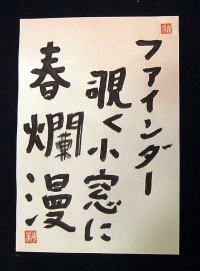 ファインダー
覗く小窓に
春爛漫